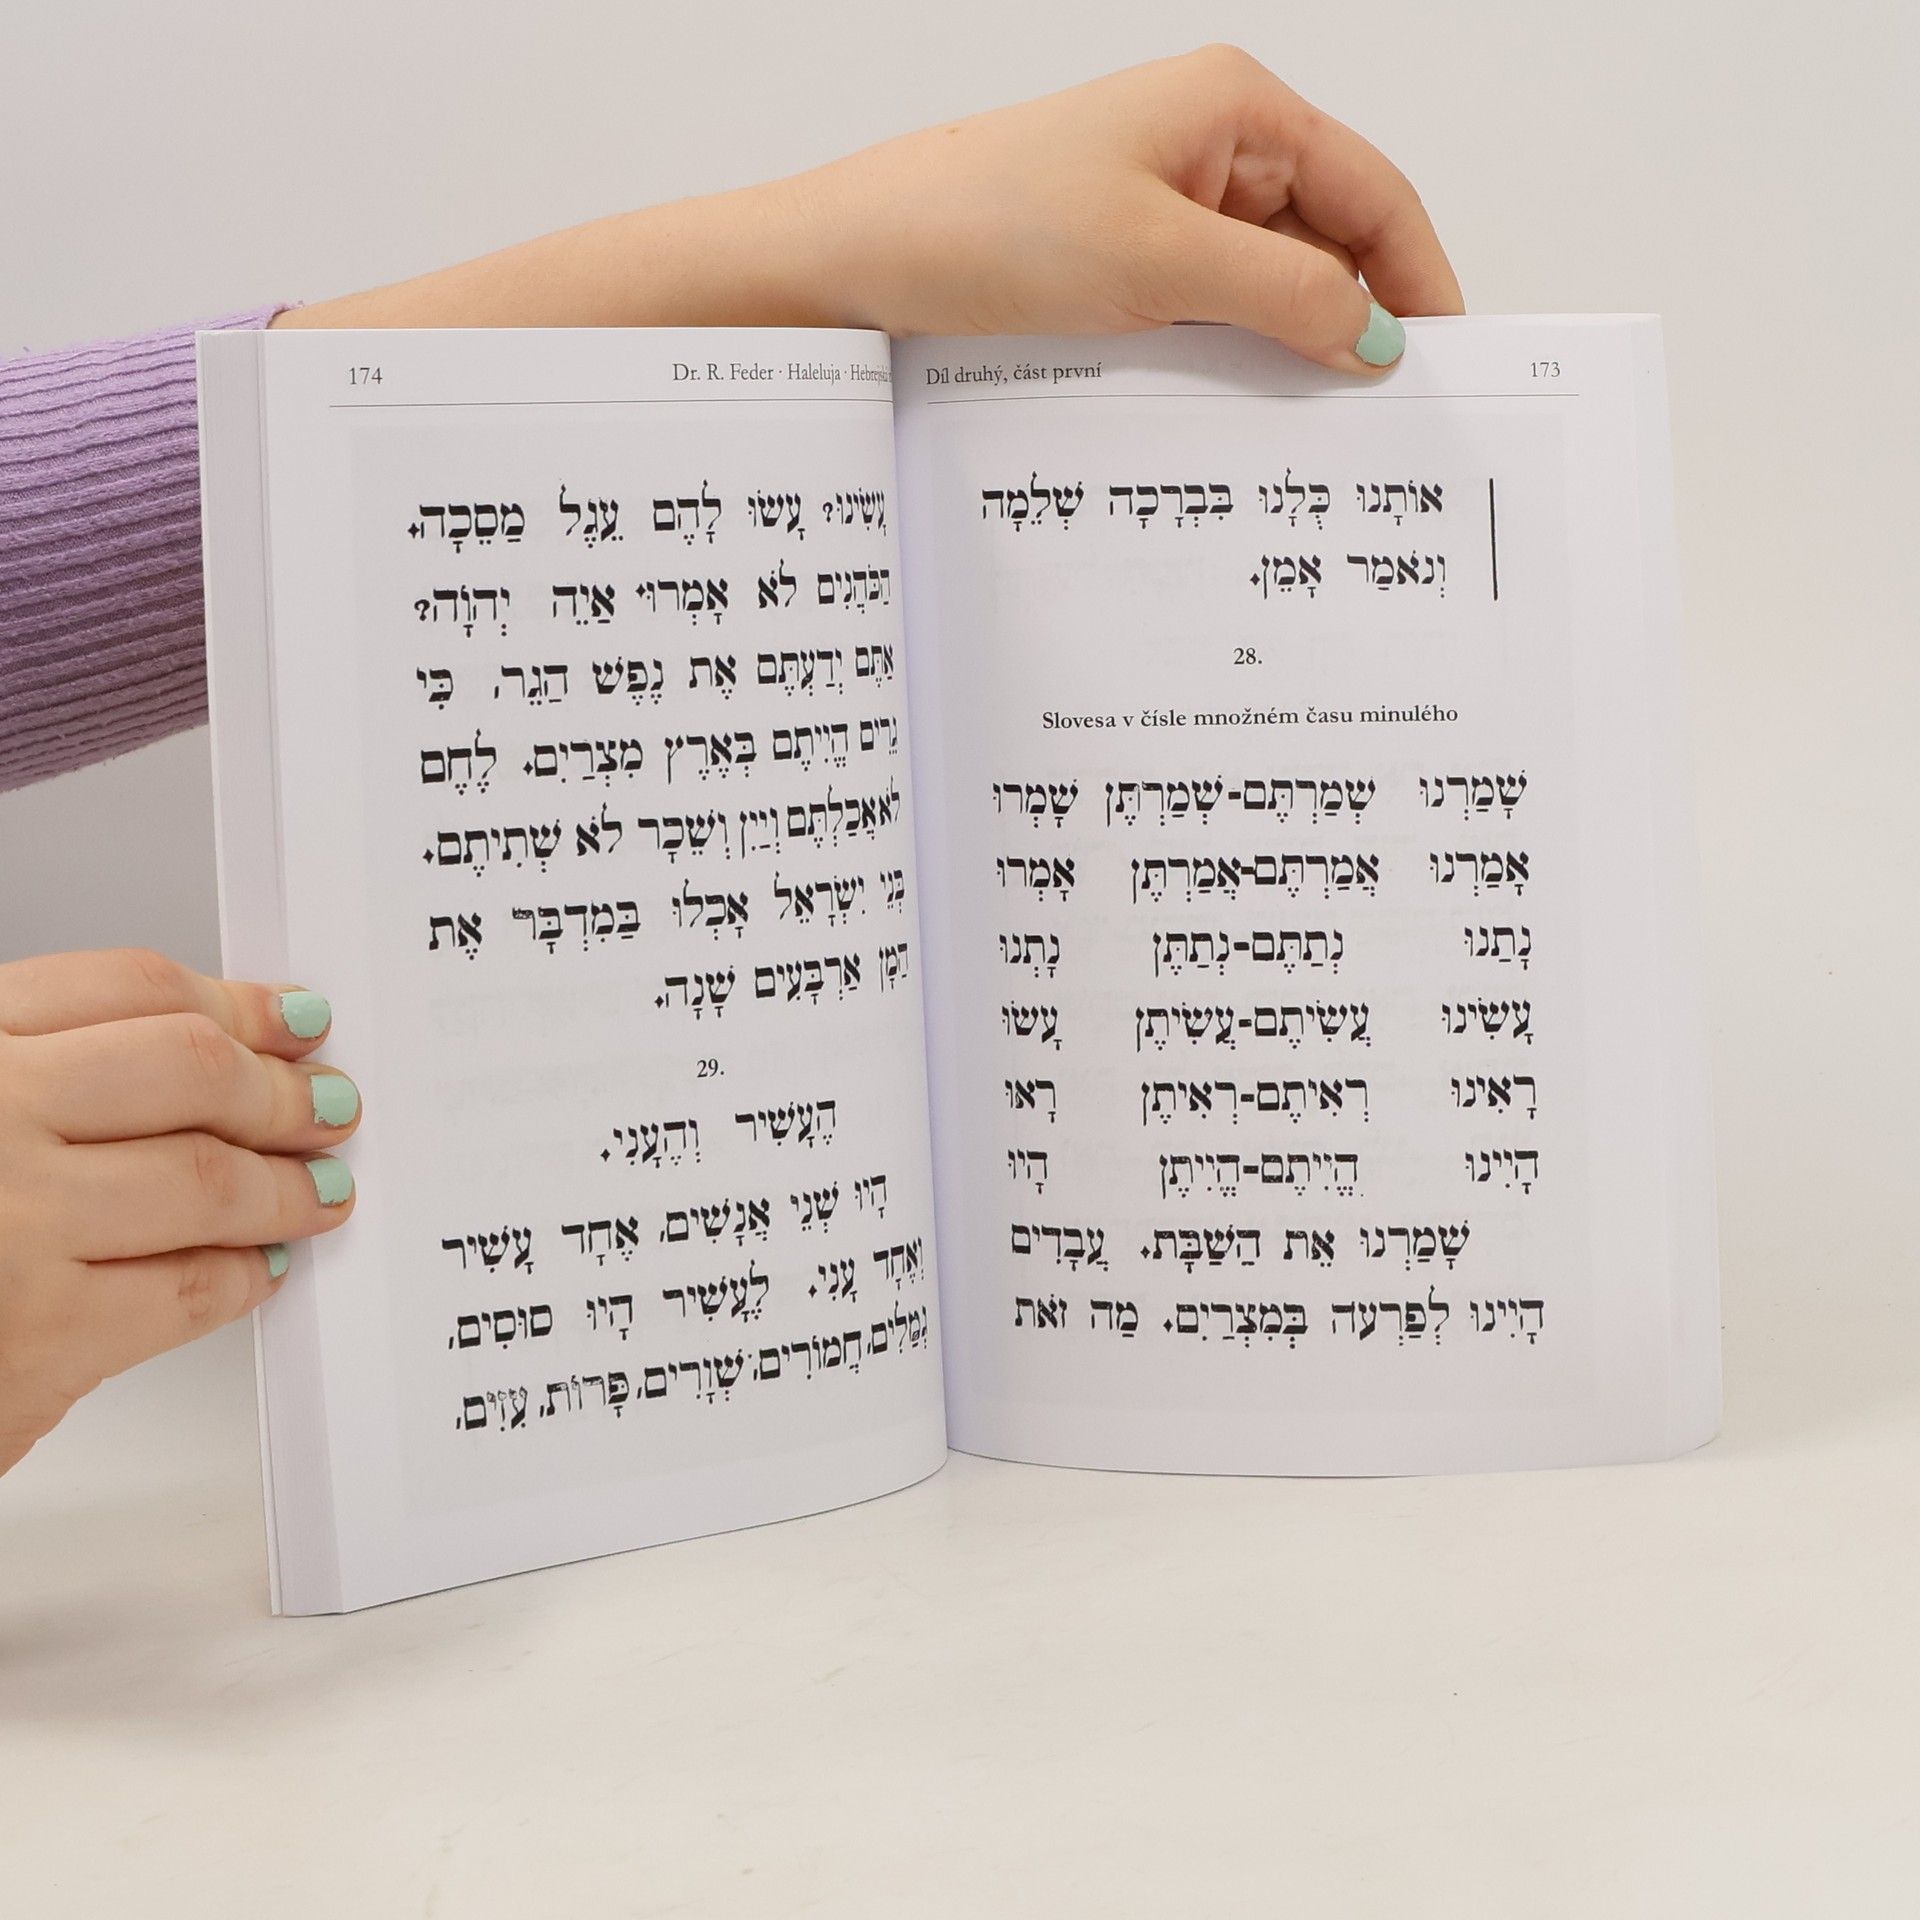 Díl druhý, část první 173
אוֹתָנוּ כֻּלָנוּ בִּבְרָכָה שְׁלֵמָה
וְנֹאמַר אָמֵן.
28.
Slovesa v čísle množném času minulého
שָׁמַרְנוּ שְׁמַרְתֶּם-שְׁמַרְתֶּן שָׁמְרוּ
אָמַרְנוּ אֲמַרְתֶּם-אֲמַרְתֶּן אָמְרוּ
נָתַנוּ נְתַתֶּם-נְתַתֶּן נָתְנוּ
עָשִׂינוּ עֲשִׂיתֶם-עֲשִׂיתֶן עָשׂוּ
רָאִינוּ רְאִיתֶם-רְאִיתֶן רָאוּ
הָיִינוּ הֱיִיתֶם-הֱיִיתֶן הָיוּ
שָׁמַרְנוּ אֵת הַשַׁבָּת. עֲבָדִים
הָיִינוּ לְפַרְעה בְּמִצְרַיִם. מַה זֹאת
174 Dr. R. Feder · Haleluja ·
עָשִׂינוּ? עָשׂוּ לָהֶם עֵגֶל מַסֵכָה.
הַכֹּהֲנִים לֹא אָמְרוּ. אַיֵה יְהוָֹה?
אַתֶּם יְדַעְתֶּם אֶת נֶפֶשׁ הַגֵר, כִּי
גֵרִים הֱיִיתֶם בְּאֶרֶץ מִצְרַיִם. לֶחֶם
לֹא אֲכַלְתֶּם וְיַיִן וְשֵׁכָר לֹא שְׁתִיתֶם.
בְּנֵי יִשְׂרָאֵל אָכְלוּ בַּמִדְבָּר אֶת
הַמָן אַרְבָּעִים שָׁנָה.
29.
הֶעָשִׁיר וְהֶעָנִי.
הָיוּ שְׁנֵי אֲנָשִׁים, אֶחָד עָשִׁיר
וְאֶחָד עָנִי. לֶעָשִׁיר הָיוּ סוּסִים,
גְמַלִים, חֲמוֹרִים, שְׁוָרִים, פָּרוֹת, עִזִים,